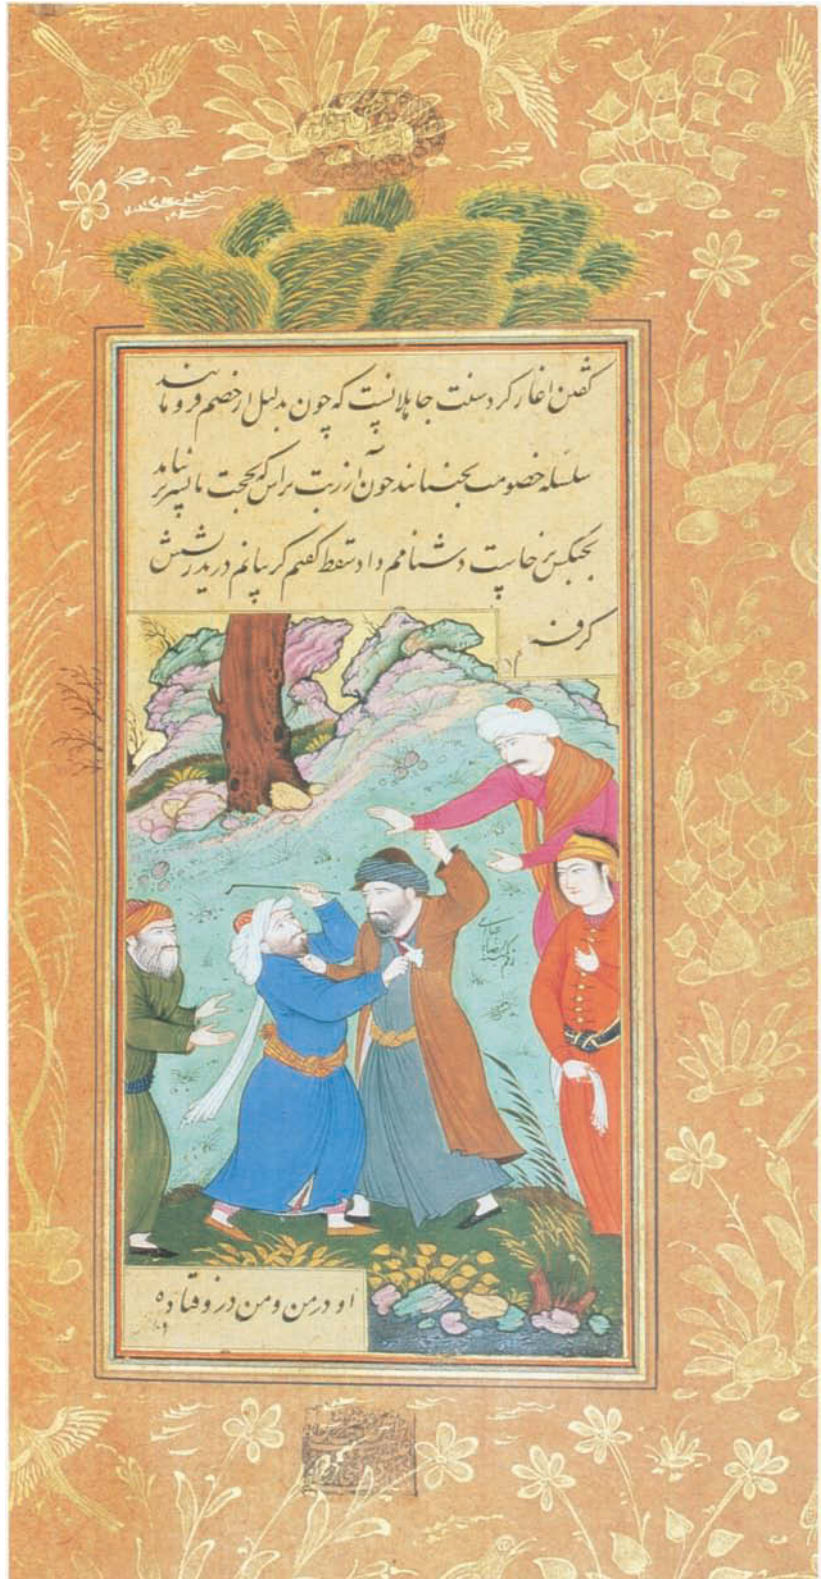 گفتن اغاز کرد سنت جاهلانست که چون بدلیل از خصم فرو مانند
سلسله خصومت بجنبانند چون آزر بت تراش که بحجت با پسر بر نیامد
بجنکش بر خاست دشنامم داد سقط گفتم گریبانم درید ریشش
گرفتم
او در من و من درو فتاده